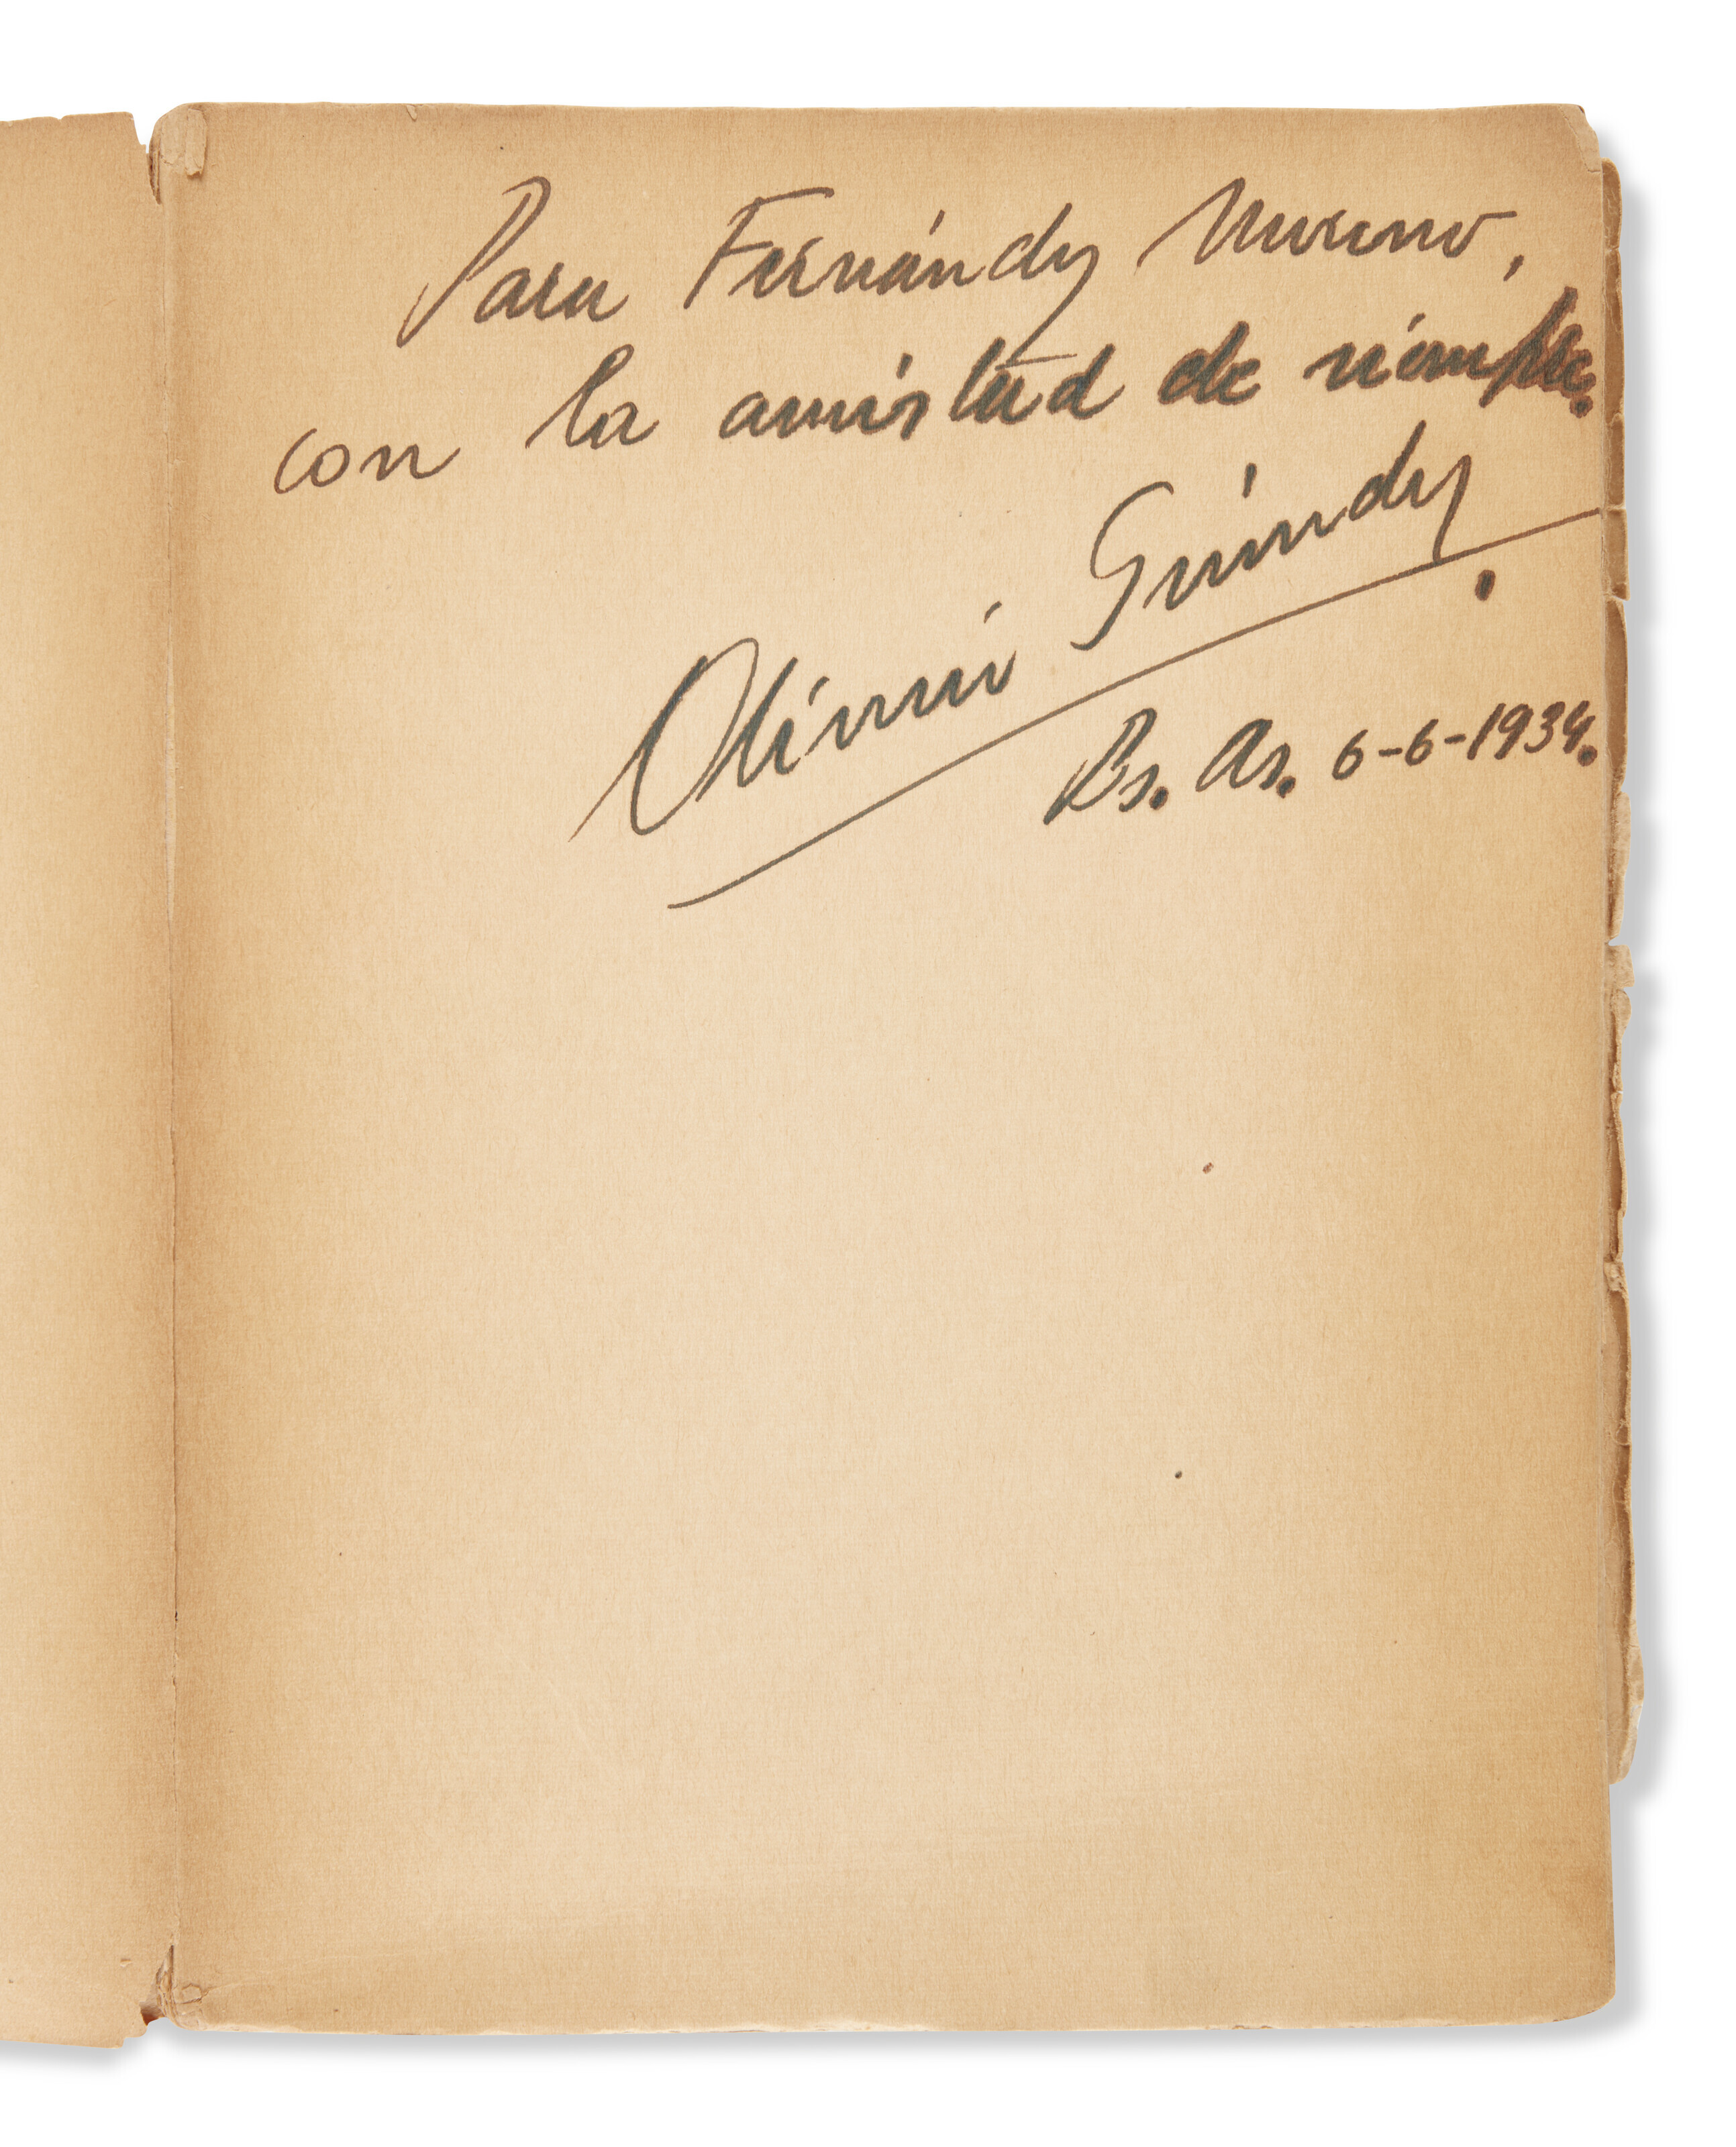 Para Fernández Moreno,
con la amistad de siempre.
Oliverio Girondo.
Bs. As. 6-6-1934.